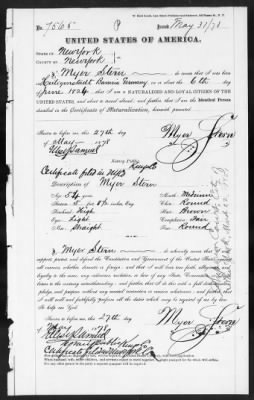 No. 7565 Issued May 31/78
UNITED STATES OF AMERICA.
STATE OF New York
COUNTY OF New York
I, Myer Stern do swear that I was born
in Germany on or about the 6th day
of June 1824 that I am a NATURALIZED AND LOYAL CITIZEN OF THE
UNITED STATES, and about to travel abroad; and further, that I am the Identical Person
described in the Certificate of Naturalization, herewith presented.
Sworn to before me, this 27th day
of May 1878
Myer Stern
Notary Public
Kings Co
Certificate filed in NYCo
Description of Myer Stern
Age, 54 years Mouth, Medium
Stature, 5 feet 8½ inches, Eng. Chin, Round
Forehead, High Hair, Brown
Eyes, Light Complexion, Fair
Nose, Straight Face, Round
I, Myer Stern do solemnly swear that I will
support, protect and defend the Constitution and Government of the United States against
all enemies, whether domestic or foreign; and that I will bear true faith, allegiance and
loyalty to the same, any ordinance, resolution or law of any State, Convention or Legisla-
ture to the contrary notwithstanding; and further, that I do this with a full determination,
pledge and purpose, without any mental reservation or evasion whatsoever; and further, that
I will well and faithfully perform all the duties which may be required of me by law.
So help me God.
Sworn to before me, this 27th day
of May 1878
Myer Stern
Notary Public Kings Co
Certificate filed in New York Co